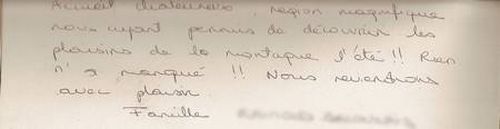 Accueil chaleureux, région magnifique
nous ayant permis de découvrir les
plaisirs de la montagne l'été !! Rien
n'a manqué !! Nous reviendrons
avec plaisir.
Famille